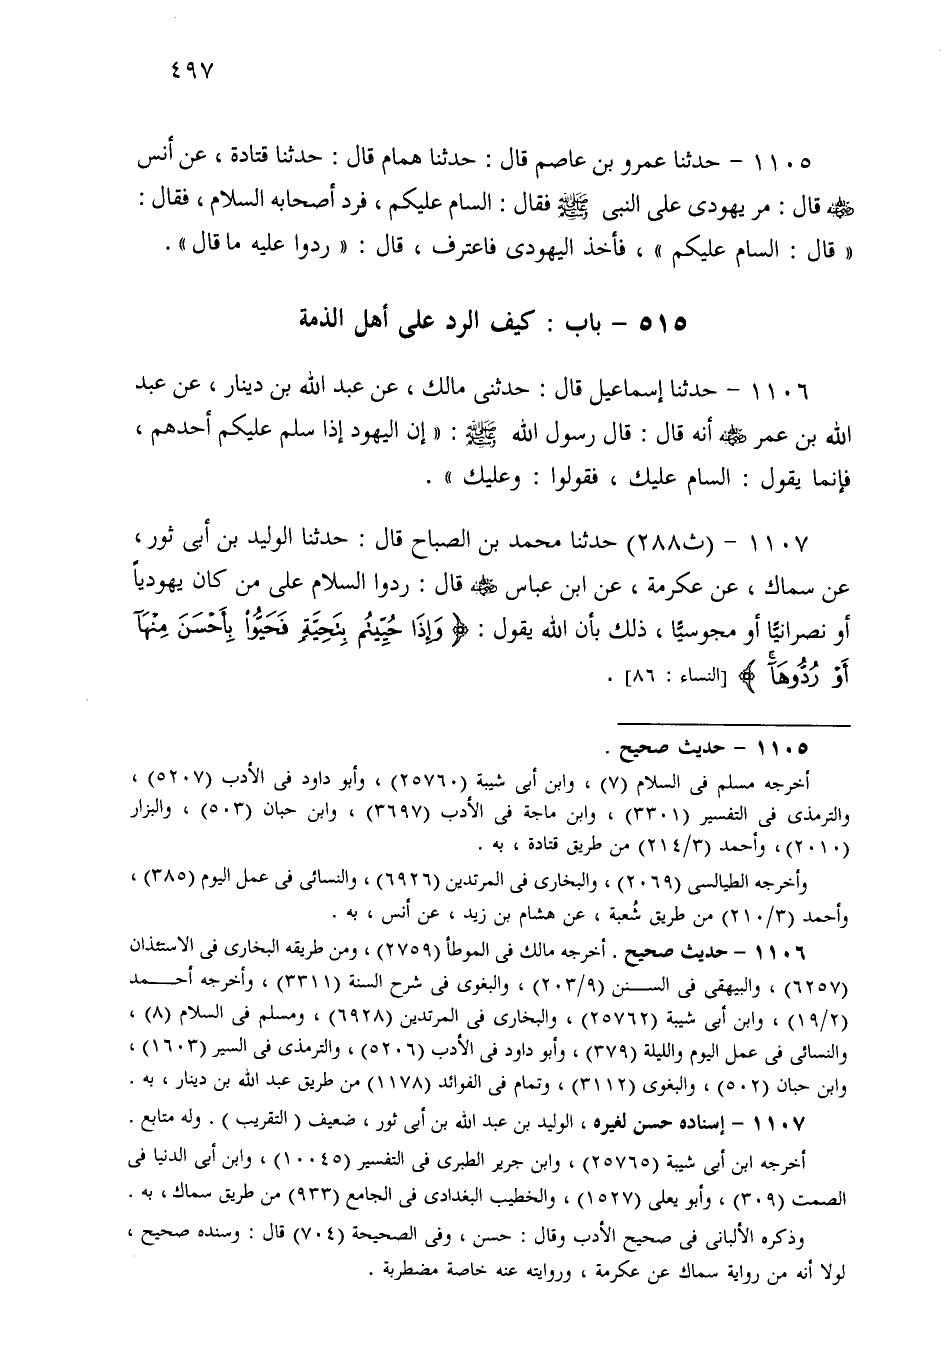 ٤٩٧
١١٠٥ – حدثنا عمرو بن عاصم قال : حدثنا همام قال : حدثنا قتادة ، عن أنس
رضي الله عنه قال : مر يهودى على النبى ﷺ فقال : السام عليكم ، فرد أصحابه السلام ، فقال :
« قال : السام عليكم » ، فأخذ اليهودى فاعترف ، قال : « ردوا عليه ما قال » .
٥١٥ – باب : كيف الرد على أهل الذمة
١١٠٦ – حدثنا إسماعيل قال : حدثنى مالك ، عن عبد الله بن دينار ، عن عبد
الله بن عمر رضي الله عنه أنه قال : قال رسول الله ﷺ : « إن اليهود إذا سلم عليكم أحدهم ،
فإنما يقول : السام عليك ، فقولوا : وعليك » .
١١٠٧ – (ث٢٨٨) حدثنا محمد بن الصباح قال : حدثنا الوليد بن أبى ثور ،
عن سماك ، عن عكرمة ، عن ابن عباس رضي الله عنه قال : ردوا السلام على من كان يهودياً
أو نصرانيًّا أو مجوسيًّا ، ذلك بأن الله يقول : ﴿ وَإِذَا حُيِّيتُم بِتَحِيَّةٍ فَحَيُّوا۟ بِأَحْسَنَ مِنْهَآ
أَوْ رُدُّوهَآ ﴾ [النساء : ٨٦] .
١١٠٥ – حديث صحيح .
أخرجه مسلم فى السلام (٧) ، وابن أبى شيبة (٢٥٧٦٠) ، وأبو داود فى الأدب (٥٢٠٧) ،
والترمذى فى التفسير (٣٣٠١) ، وابن ماجة فى الأدب (٣٦٩٧) ، وابن حبان (٥٠٣) ، والبزار
(٢٠١٠) ، وأحمد (٢١٤/٣) من طريق قتادة ، به .
وأخرجه الطيالسى (٢٠٦٩) ، والبخارى فى المرتدين (٦٩٢٦) ، والنسائى فى عمل اليوم (٣٨٥) ،
وأحمد (٢١٠/٣) من طريق شُعبة ، عن هشام بن زيد ، عن أنس ، به .
١١٠٦ – حديث صحيح . أخرجه مالك فى الموطأ (٢٧٥٩) ، ومن طريقه البخارى فى الاستئذان
(٦٢٥٧) ، والبيهقى فى السنن (٢٠٣/٩) ، والبغوى فى شرح السنة (٣٣١١) ، وأخرجه أحمد
(١٩/٢) ، وابن أبى شيبة (٢٥٧٦٢) ، والبخارى فى المرتدين (٦٩٢٨) ، ومسلم فى السلام (٨) ،
والنسائى فى عمل اليوم والليلة (٣٧٩) ، وأبو داود فى الأدب (٥٢٠٦) ، والترمذى فى السير (١٦٠٣) ،
وابن حبان (٥٠٢) ، والبغوى (٣١١٢) ، وتمام فى الفوائد (١١٧٨) من طريق عبد الله بن دينار ، به .
١١٠٧ – إسناده حسن لغيره ، الوليد بن عبد الله بن أبى ثور ، ضعيف ( التقريب ) . وله متابع .
أخرجه ابن أبى شيبة (٢٥٧٦٥) ، وابن جرير الطبرى فى التفسير (١٠٠٤٥) ، وابن أبى الدنيا فى
الصمت (٣٠٩) ، وأبو يعلى (١٥٢٧) ، والخطيب البغدادى فى الجامع (٩٣٣) من طريق سماك ، به .
وذكره الألبانى فى صحيح الأدب وقال : حسن ، وفى الصحيحة (٧٠٤) قال : وسنده صحيح ،
لولا أنه من رواية سماك عن عكرمة ، وروايته عنه خاصة مضطربة .